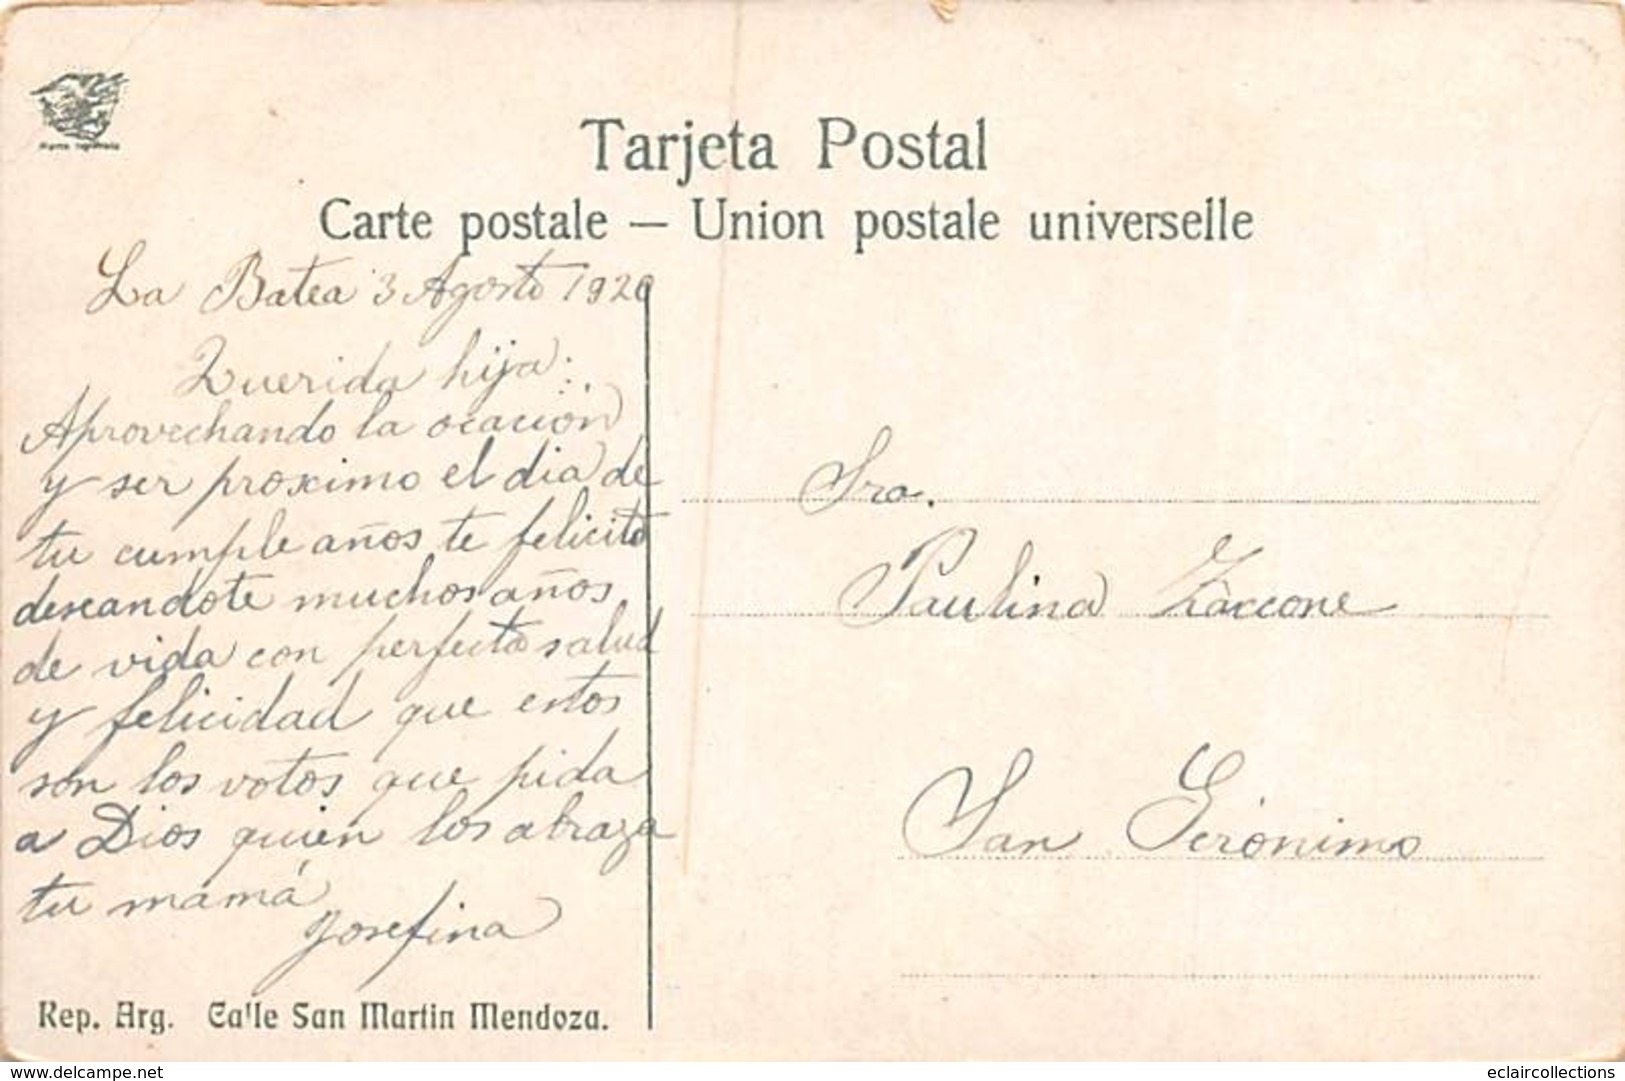 Tarjeta Postal
Carte postale — Union postale universelle
La Batea 3 Agosto 1920
Querida hija:
Aprovechando la ocacion
y ser proximo el dia de
tu cumple años te felicito
deseandote muchos años
de vida con perfecta salud
y felicidad que estos
son los votos que pida
a Dios quien los abraza
tu mamá
Josefina
Rep. Arg. Calle San Martin Mendoza.
Sra.
Paulina Zaccone
San Gerónimo
www.delcampe.net
eclaircollections